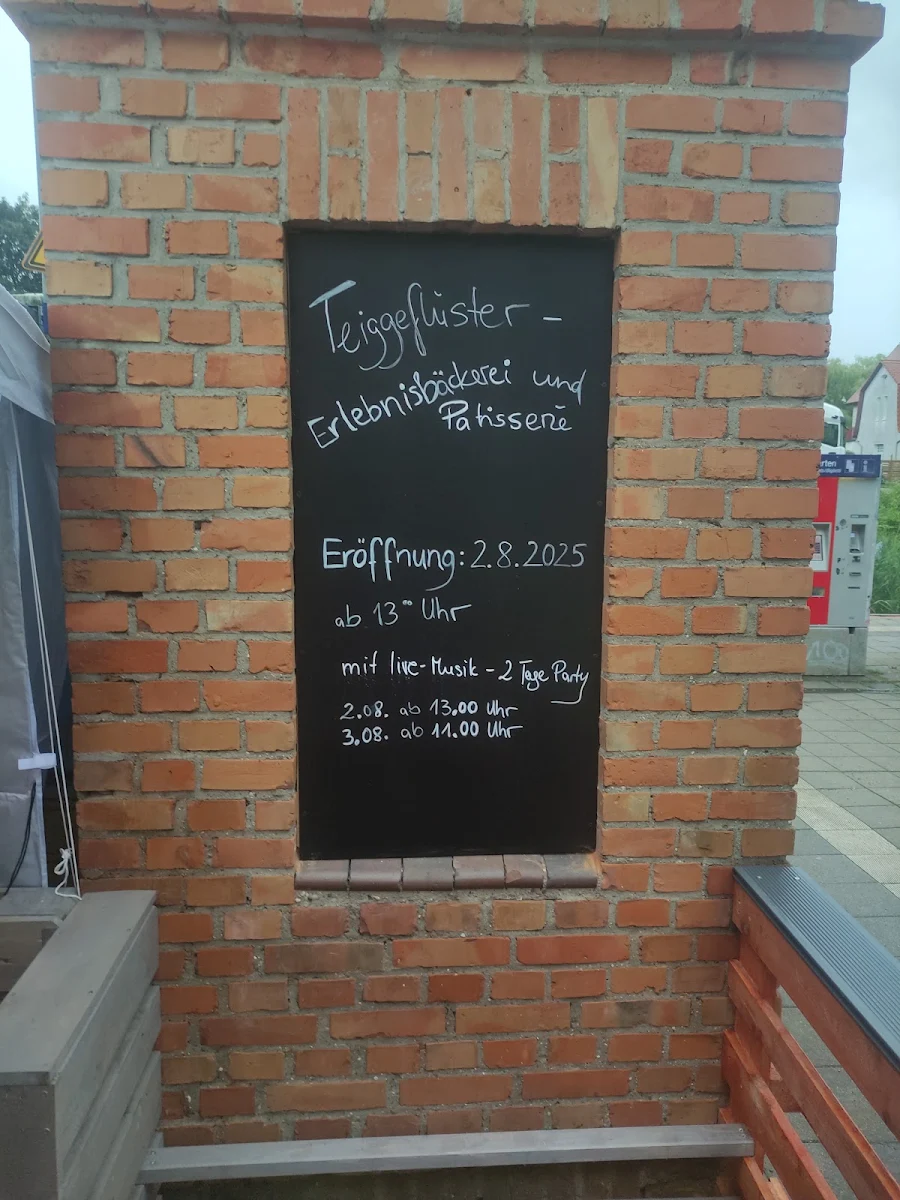 Teiggeflüster –
Erlebnisbäckerei und
Patisserie
Eröffnung: 2.8.2025
ab 13°° Uhr
mit live-Musik - 2 Tage Party
2.08. ab 13.00 Uhr
3.08. ab 11.00 Uhr